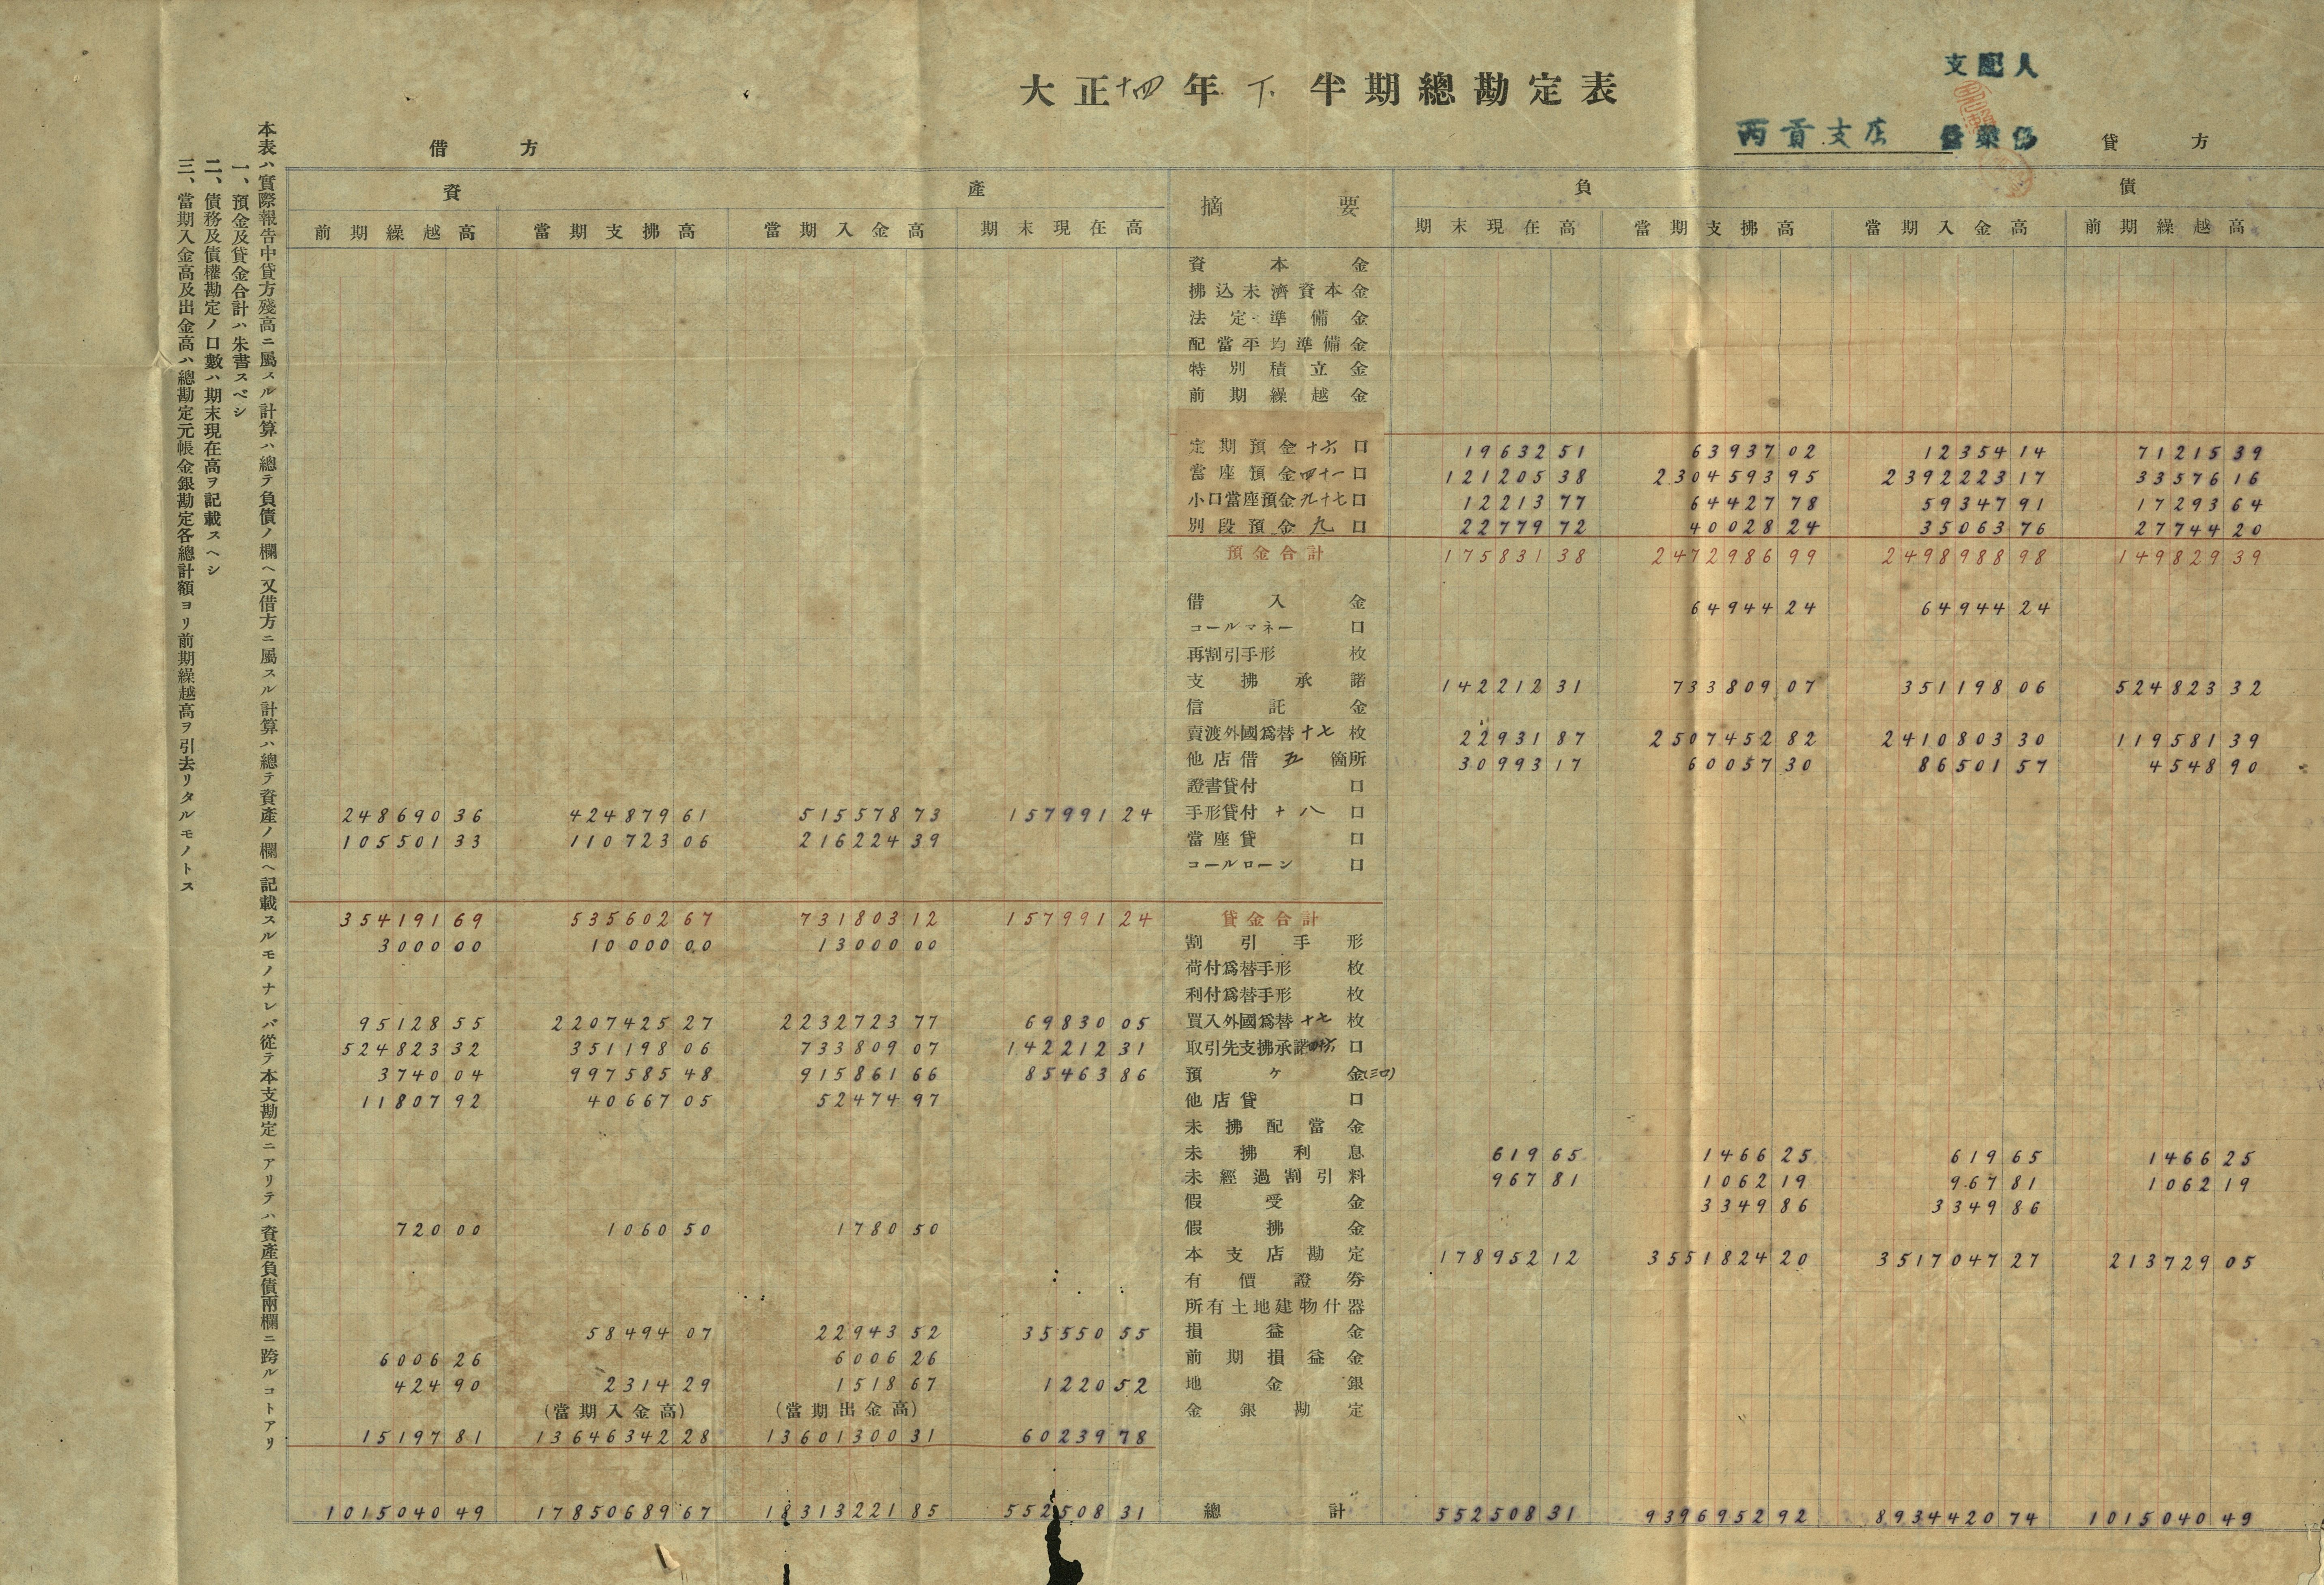 大正十四年下半期總勘定表
支配人
西貢支店
借方
貸方
資產
摘要
負債
前期繰越高 當期支拂高 當期入金高 期末現在高 期末現在高 當期支拂高 當期入金高 前期繰越高
資本金
拂込未濟資本金
法定準備金
配當平均準備金
特別積立金
前期繰越金
定期預金十六口 19632 51 63937 02 12354 14 71215 39
當座預金四十一口 121205 38 2304593 95 2392223 17 33576 16
小口當座預金九十七口 12213 77 64427 78 59347 91 17293 64
別段預金九口 22779 72 40028 24 35063 76 27744 20
預金合計 175831 38 2472986 99 2498988 98 149829 39
借入金 64944 24 64944 24
コールマネー 口
再割引手形 枚
支拂承諾 142212 31 733809 07 351198 06 524823 32
信託金
賣渡外國爲替十七枚 22931 87 2507452 82 2410803 30 119581 39
他店借五箇所 30993 17 60057 30 86501 57 4548 90
證書貸付 口
248690 36 424879 61 515578 73 157991 24 手形貸付十八口
105501 33 110723 06 216224 39 當座貸 口
コールローン 口
354191 69 535602 67 731803 12 157991 24 貸金合計
3000 00 10000 00 13000 00 割引手形
荷付爲替手形 枚
利付爲替手形 枚
95128 55 2207425 27 2232723 77 69830 05 買入外國爲替十七枚
524823 32 351198 06 733809 07 142212 31 取引先支拂承諾 口
3740 04 997585 48 915861 66 85463 86 預ヶ金(三口)
11807 92 40667 05 52474 97 他店貸 口
未拂配當金
未拂利息 619 65 1466 25 619 65 1466 25
未經過割引料 967 81 1062 19 967 81 1062 19
假受金 3349 86 3349 86
720 00 1060 50 1780 50 假拂金
本支店勘定 178952 12 3551824 20 3517047 27 213729 05
有價證券
所有土地建物什器
58494 07 22943 52 35550 55 損益金
6006 26 6006 26 前期損益金
424 90 2314 29 1518 67 1220 52 地金銀
(當期入金高) (當期出金高) 金銀勘定
15197 81 13646342 28 13601300 31 60239 78
1015040 49 17850689 67 18313221 85 552508 31 總計 552508 31 9396952 92 8934420 74 1015040 49
本表ハ實際報告中貸方殘高ニ屬スル計算ハ總テ負債ノ欄ヘ又借方ニ屬スル計算ハ總テ資產ノ欄ヘ記載スルモノナレバ從テ本支勘定ニアリテハ資產負債兩欄ニ跨ルコトアリ
一、預金及貸金合計ハ朱書スベシ
二、債務及債權勘定ノ口數ハ期末現在高ヲ記載スヘシ
三、當期入金高及出金高ハ總勘定元帳金銀勘定各總計額ヨリ前期繰越高ヲ引去リタルモノトス